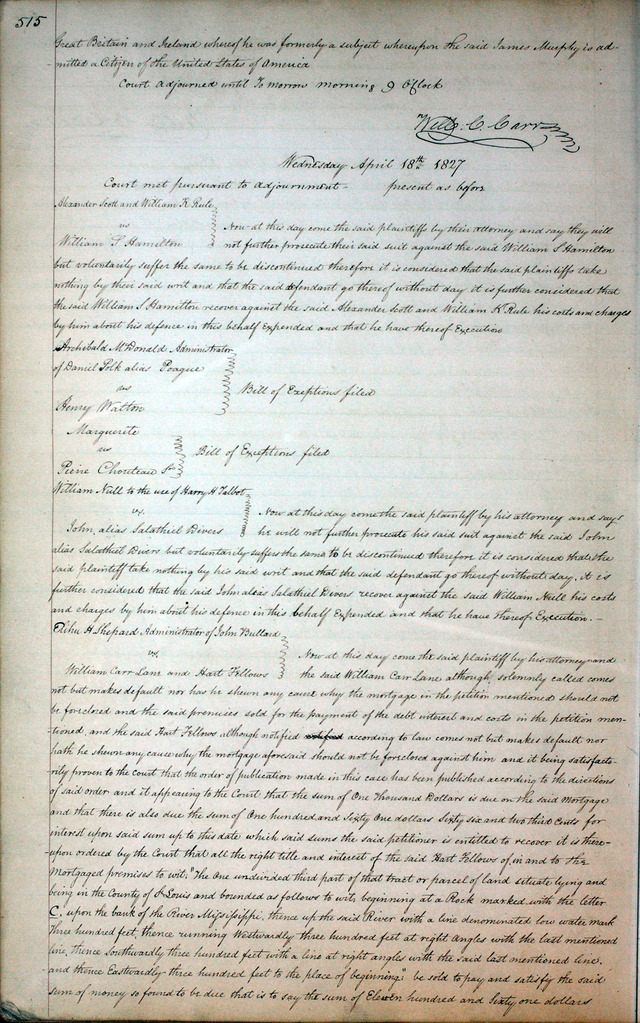 515
Great Britain and Ireland whereof he was formerly a subject whereupon the said James Murphy is ad-
mitted a Citizen of the United States of America
Court adjourned until To morrow morning 9 OClock
Will: C. Carr
Wednesday April 18th 1827
Court met pursuant to adjournment - present as before
Alexander Scott and William K Rule
vs
William S Hamilton
Now at this day come the said plaintiffs by their attorney and say they will
not further prosecute their said suit against the said William S Hamilton
but voluntarily suffer the same to be discontinued therefore it is considered that the said plaintiffs take
nothing by their said writ and that the said defendant go thereof without day it is further considered that
the said William S Hamilton recover against the said Alexander Scott and William K Rule his costs and charges
by him about his defence in this behalf Expended and that he have thereof Execution
Archibald McDonald Administrator
of Daniel Polk alias Poague
vs
Henry Walton
Bill of Exeptions filed
Marguerite
vs
Pierre Chouteau Sr
Bill of Exceptions filed
William Null to the use of Harry H Talbot
vs.
John, alias Salathiel Divers
Now at this day come the said plaintiff by his attorney and says
he will not further prosecute his said suit against the said John
alias Salathiel Divers but voluntarily suffers the same to be discontinued therefore it is considered that the
said plaintiff take nothing by his said writ and that the said defendant go thereof without day, it is
further considered that the said John alias Salathiel Divers recover against the said William Null his costs
and charges by him about his defence in this behalf Expended and that he have thereof Execution. -
Elihu H Shepard Administrator of John Bullard
vs.
William Carr Lane and Hart Fellows
Now at this day come the said plaintiff by his attorney and
the said William Carr Lane although solemnly called comes
not but makes default nor has he shewn any cause why the mortgage in the petition mentioned should not
be foreclosed and the said premises sold for the payment of the debt interest and costs in the petition men-
tioned, and the said Hart Fellows although notified according to law comes not but makes default nor
hath he shewn any cause why the mortgage aforesaid should not be foreclosed against him and it being satisfacto-
rily proven to the Court that the order of publication made in this case has been published according to the directions
of said order and it appearing to the Court that the sum of One Thousand Dollars is due on the said Mortgage
and that there is also due the sum of One hundred and Sixty One dollars Sixty six and two third Cents for
interest upon said sum up to this date which said sums the said petitioner is entitled to recover it is there-
-upon ordered by the Court that all the right title and interest of the said Hart Fellows of in and to the
Mortgaged premises to wit, "The One undivided third part of that tract or parcel of land situate lying and
being in the County of St Louis and bounded as follows to wit, beginning at a Rock marked with the letter
C, upon the bank of the River Mississippi, thence up the said River with a line denominated low water mark
three hundred feet, thence running Westwardly three hundred feet at right angles with the last mentioned
line, thence Southwardly three hundred feet with a line at right angles with the said last mentioned line.
and thence Eastwardly three hundred feet to the place of beginning," be sold to pay and satisfy the said
sum of money so found to be due that is to say the sum of Eleven hundred and Sixty one dollars